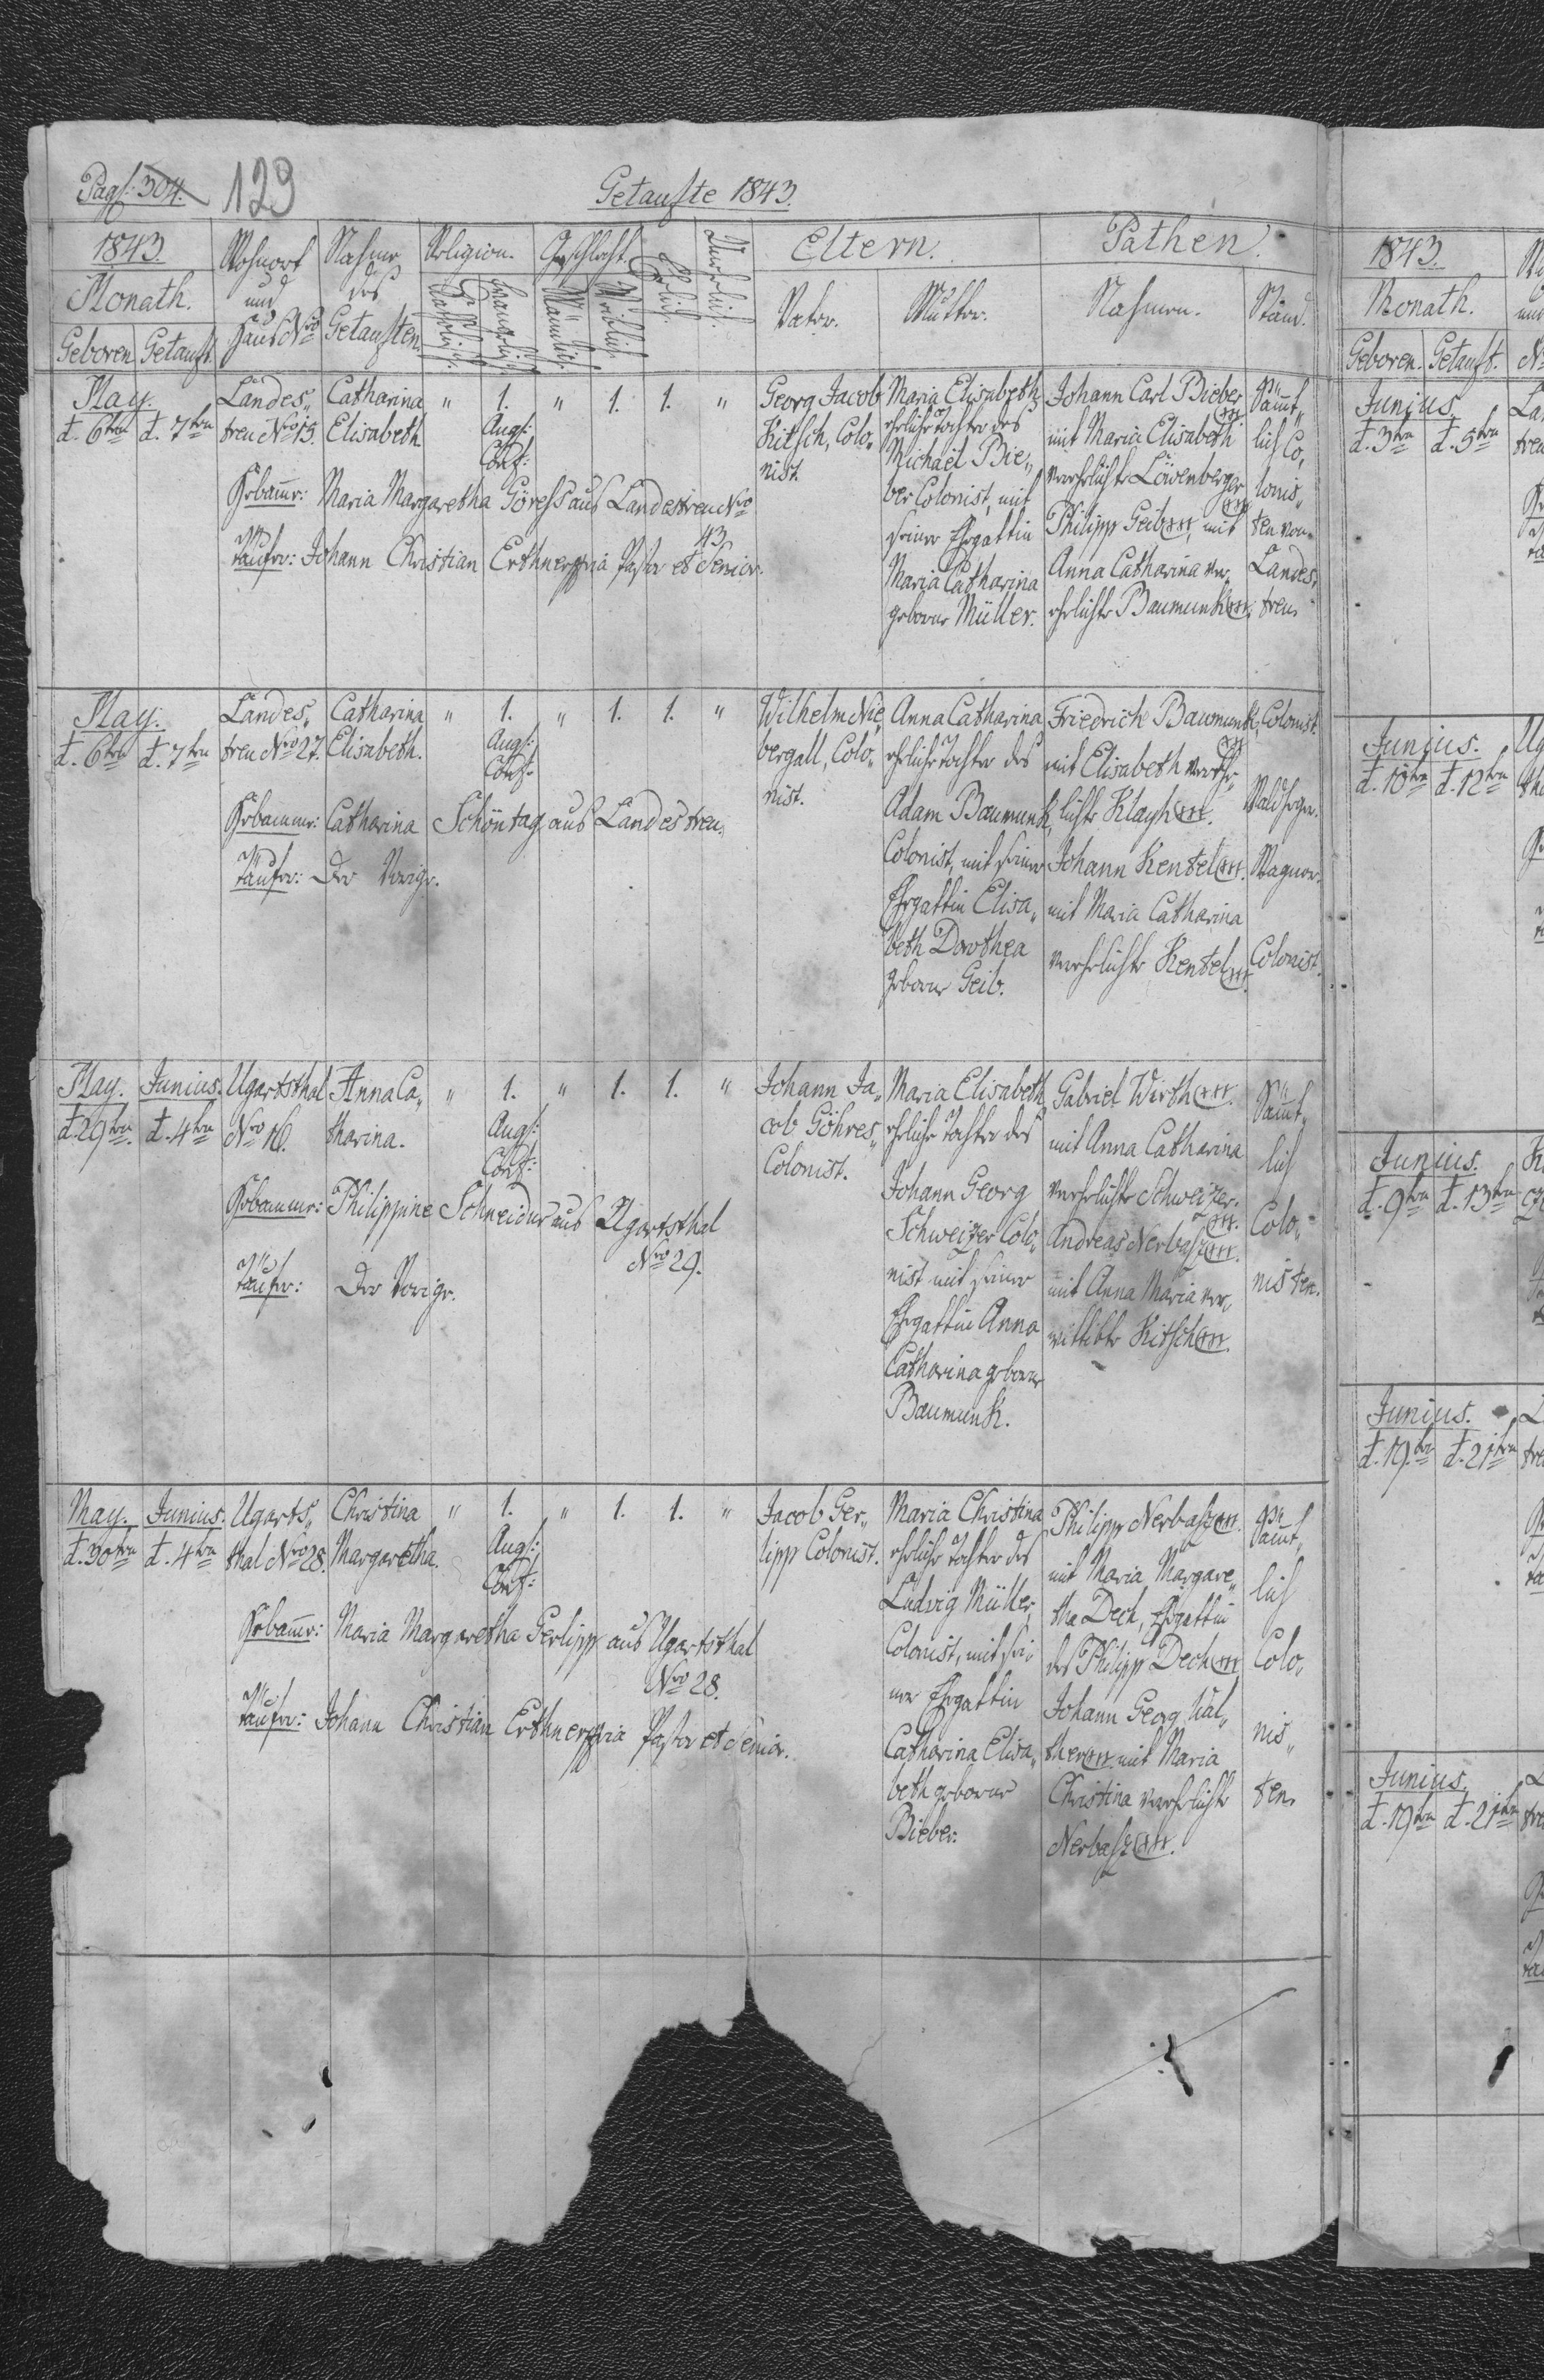 Pag: 304.
129
Getaufte 1843.
1843.
Monath.
Geboren Getauft.
Wohnort
und
Haus Nro
Nahme
des
Getauften.
Religion.
Catholisch.
Evangelisch.
Geschlecht.
Männlich.
Weiblich.
Ehelich.
Unehelich.
Eltern.
Vater.
Mutter.
Pathen.
Nahmen.
Stand.
May.
d. 6ten d. 7ten
Landes„
treu Nro 15.
Catharina
Elisabeth
" 1. " 1. 1. "
Augs:
Conf:
Georg Jacob
Kitsch, Colo„
nist.
Maria Elisabeth
eheliche Tochter des
Michael Bie„
ber Colonist, mit
seiner Ehegattin
Maria Catharina
geborne Müller.
Johann Carl Bieber
mit Maria Elisabeth
verehelichte Löwenberger
Philipp Geib, mit
Anna Catharina ver„
ehelichte Baumunk
Sämt„
lich Co„
lonis„
ten von
Landes„
treu.
Hebamme: Maria Margaretha Göress aus Landestreu Nro
43
Täufer: Johann Christian Erthner Pastor et Senior.
May.
d. 6ten d. 7ten
Landes„
treu Nro 27.
Catharina
Elisabeth.
" 1. " 1. 1. "
Augs:
Conf:
Wilhelm Nie„
bergall, Colo„
nist.
Anna Catharina
eheliche Tochter des
Adam Baumunk,
Colonist, mit seiner
Ehegattin Elisa„
beth Dorothea
geborne Geib.
Friedrich Baumunk,
mit Elisabeth vereh„
lichte Klayh
Johann Kentel
mit Maria Catharina
verehelichte Kentel
Colonist.
Waldheger.
Wagner.
Colonist.
Hebamme: Catharina Schöntag aus Landestreu.
Täufer: Der Vorige.
May. Junius.
d. 29ten d. 4ten
Ugartsthal
Nro 16.
Anna Ca„
tharina.
" 1. " 1. 1. "
Augs:
Conf:
Johann Ja„
cob Göhres„
Colonist.
Maria Elisabeth
eheliche Tochter des
Johann Georg
Schweizer Colo„
nist mit seiner
Ehegattin Anna
Catharina geborne
Baumunk.
Gabriel Wirth
mit Anna Catharina
verehelichte Schweizer.
Andreas Nerbasz
mit Anna Maria ver„
wittibte Kitsch
Sämt„
lich
Colo„
nisten.
Hebamme: Philippine Schneider aus Ugartsthal
Nro 29.
Täufer: Der Vorige.
May. Junius.
d. 30ten d. 4ten
Ugarts„
thal Nro 28.
Christina
Margaretha.
" 1. " 1. 1. "
Augs:
Conf:
Jacob Ger„
lipp Colonist.
Maria Christina
eheliche Tochter des
Ludvig Müller,
Colonist, mit sei„
ner Ehegattin
Catharina Elisa„
beth geborne
Bieber.
Philipp Nerbasz
mit Maria Margare„
tha Dech, Ehgattin
des Philipp Dech
Johann Georg Wal„
ther mit Maria
Christina verehelichte
Nerbasz
Sämt„
lich
Colo„
nis„
ten.
Hebamme: Maria Margaretha Gerlipp aus Ugartsthal
Nro 28.
Täufer: Johann Christian Erthner Pastor et Senior.
1843.
Monath.
Geboren. Getauft.
Junius.
d. 3ten d. 5ten
Junius.
d. 10ten d. 12ten
Junius.
d. 9ten d. 13ten
Junius.
d. 19ten d. 21ten
Junius.
d. 19ten d. 21ten